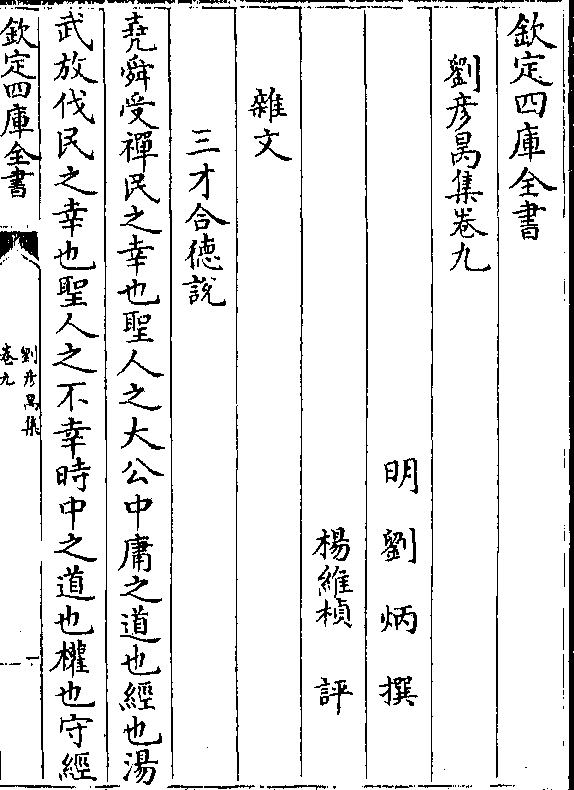 欽定四庫全書
劉彦昺集卷九
明 劉炳 撰
楊維楨 評
雜文
三才合德說
堯舜受禪民之幸也聖人之大公中庸之道也經也湯
武放伐民之幸也聖人之不幸時中之道也權也守經
欽定四庫全書
劉彦昺集
卷九
一